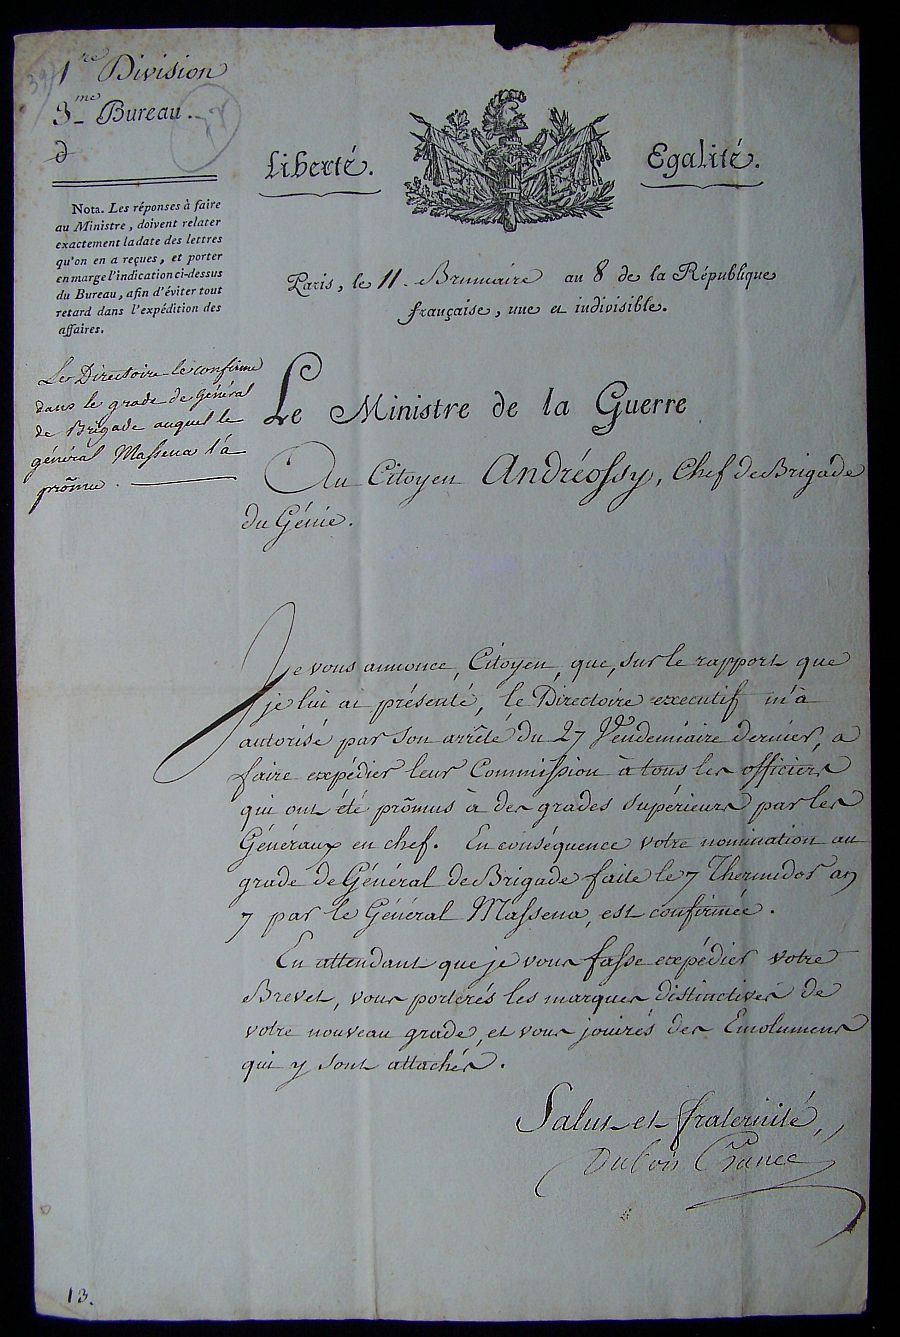 1re Division
3me Bureau.
Liberté. Egalité.
Nota. Les réponses à faire
au Ministre, doivent relater
exactement la date des lettres
qu'on en a reçues, et porter
en marge l'indication ci-dessus
du Bureau, afin d'éviter tout
retard dans l'expédition des
affaires.
Paris, le 11. Brumaire an 8 de la République
française, une et indivisible.
Le Directoire le confirme
dans le grade de Général
de Brigade auquel le
général Massena l'a
prõmu.
Le Ministre de la Guerre
Au Citoyen Andréossy, Chef de Brigade
du Génie.
Je vous annonce, Citoyen, que, sur le rapport que
je lui ai présenté, le Directoire executif m'a
autorisé par son arrêté du 27 Vendemiaire dernier, a
faire expédier leur Commission à tous les officiers
qui ont été prõmus à des grades supérieurs par les
Généraux en chef. En conséquence votre nomination au
grade de Général de Brigade faite le 7 Thermidor an
7 par le Général Massena, est confirmée.
En attendant que je vous fasse expédier votre
Brevet, vous porterés les marques distinctives de
votre nouveau grade, et vous jouirés des Emolumens
qui y sont attachés.
Salut et fraternité,
Dubois Crancé
13.